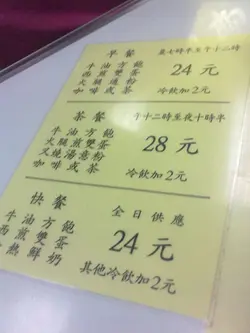 早餐 晨七時半至午十二時
牛油方飽
西煎雙蛋 24元
火腿通粉
咖啡或茶 冷飲加2元
茶餐 午十二時至夜十時半
牛油方飽
火腿煎雙蛋 28元
叉燒湯意粉
咖啡或茶 冷飲加2元
快餐 全日供應
牛油方飽
西煎雙蛋 24元
熱鮮奶 其他冷飲加2元